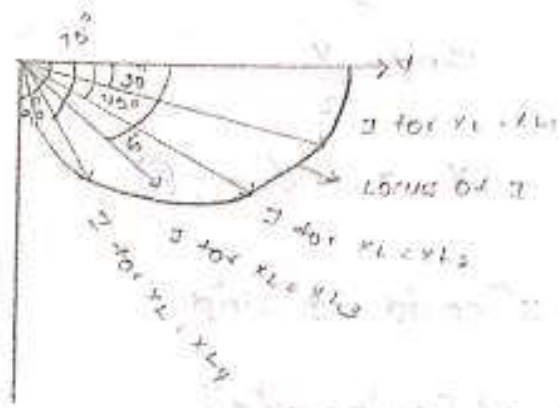 75°
30°
45°
60°
90°
V
I for XL = XL1
Locus of I
I for XL = XL2
I for XL = XL3
I for XL = XL4